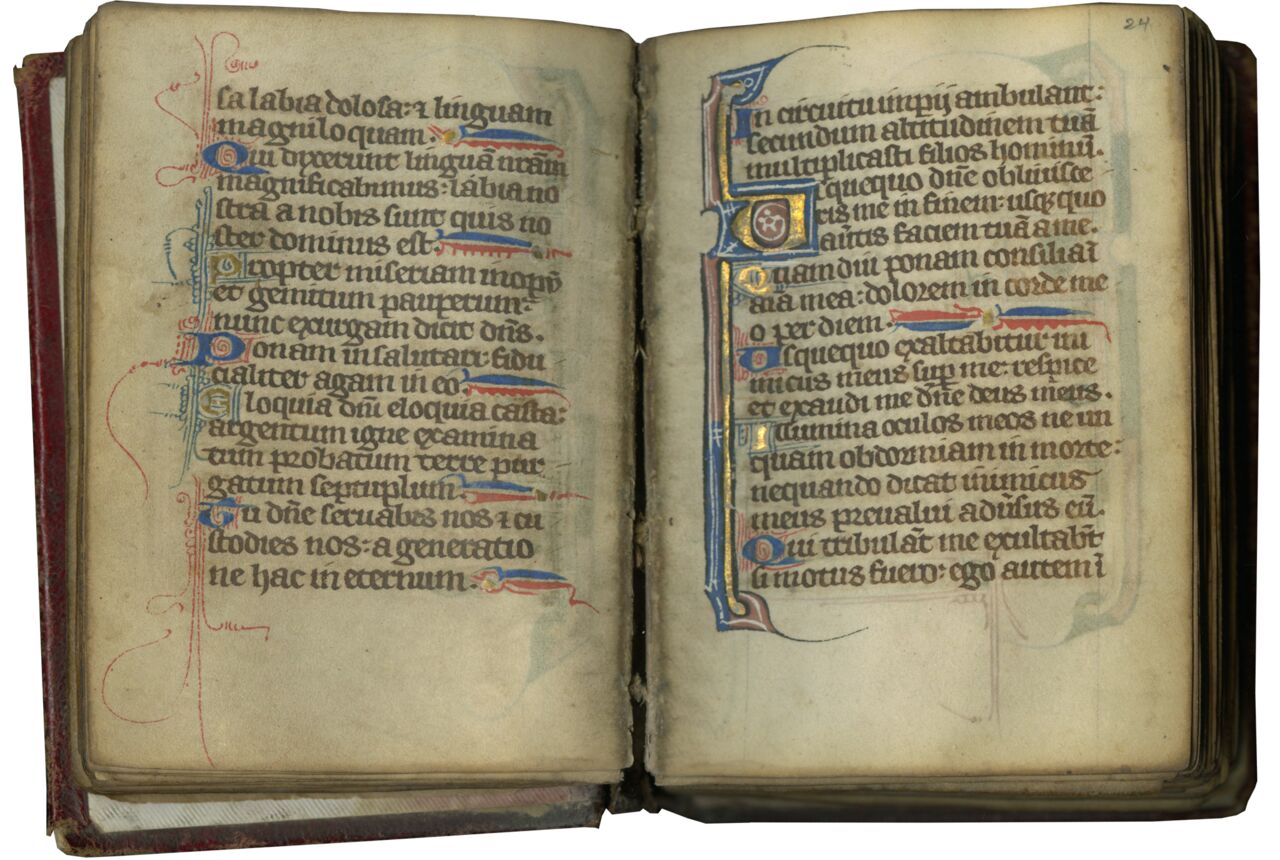 sa labia dolosa: ⁊ linguam
magniloquam.
Qui dixerunt linguā nrām
magnificabimus: labia no
stra a nobis sunt quis no
ster dominus est.
Propter miseriam inopū
et gemitum pauperum:
nunc exurgam dicit dn̄s.
Ponam in salutari: fidu
cialiter agam in eo.
Eloquia dn̄i eloquia casta:
argentum igne examina
tum probatum terre pur
gatum septuplum.
Tu dn̄e seruabis nos ⁊ cu
stodies nos: a generatio
ne hac in eternum.
24
In circuitu impij ambulant:
secundum altitudinem tuā
multiplicasti filios hominū.
Usquequo dn̄e obliuisce
ris me in finem: usq quo
auertis faciem tuā a me.
Quam diu ponam consilia ī
aīa mea: dolorem in corde me
o per diem.
Usquequo exaltabitur ini
micus meus sup me: respice
et exaudi me dn̄e deus meus.
Illumina oculos meos ne un
quam obdormiam in morte:
nequando dicat inimicus
meus preualui aduersus eū.
Qui tribulāt me exultabūt
si motus fuero: ego autem ī